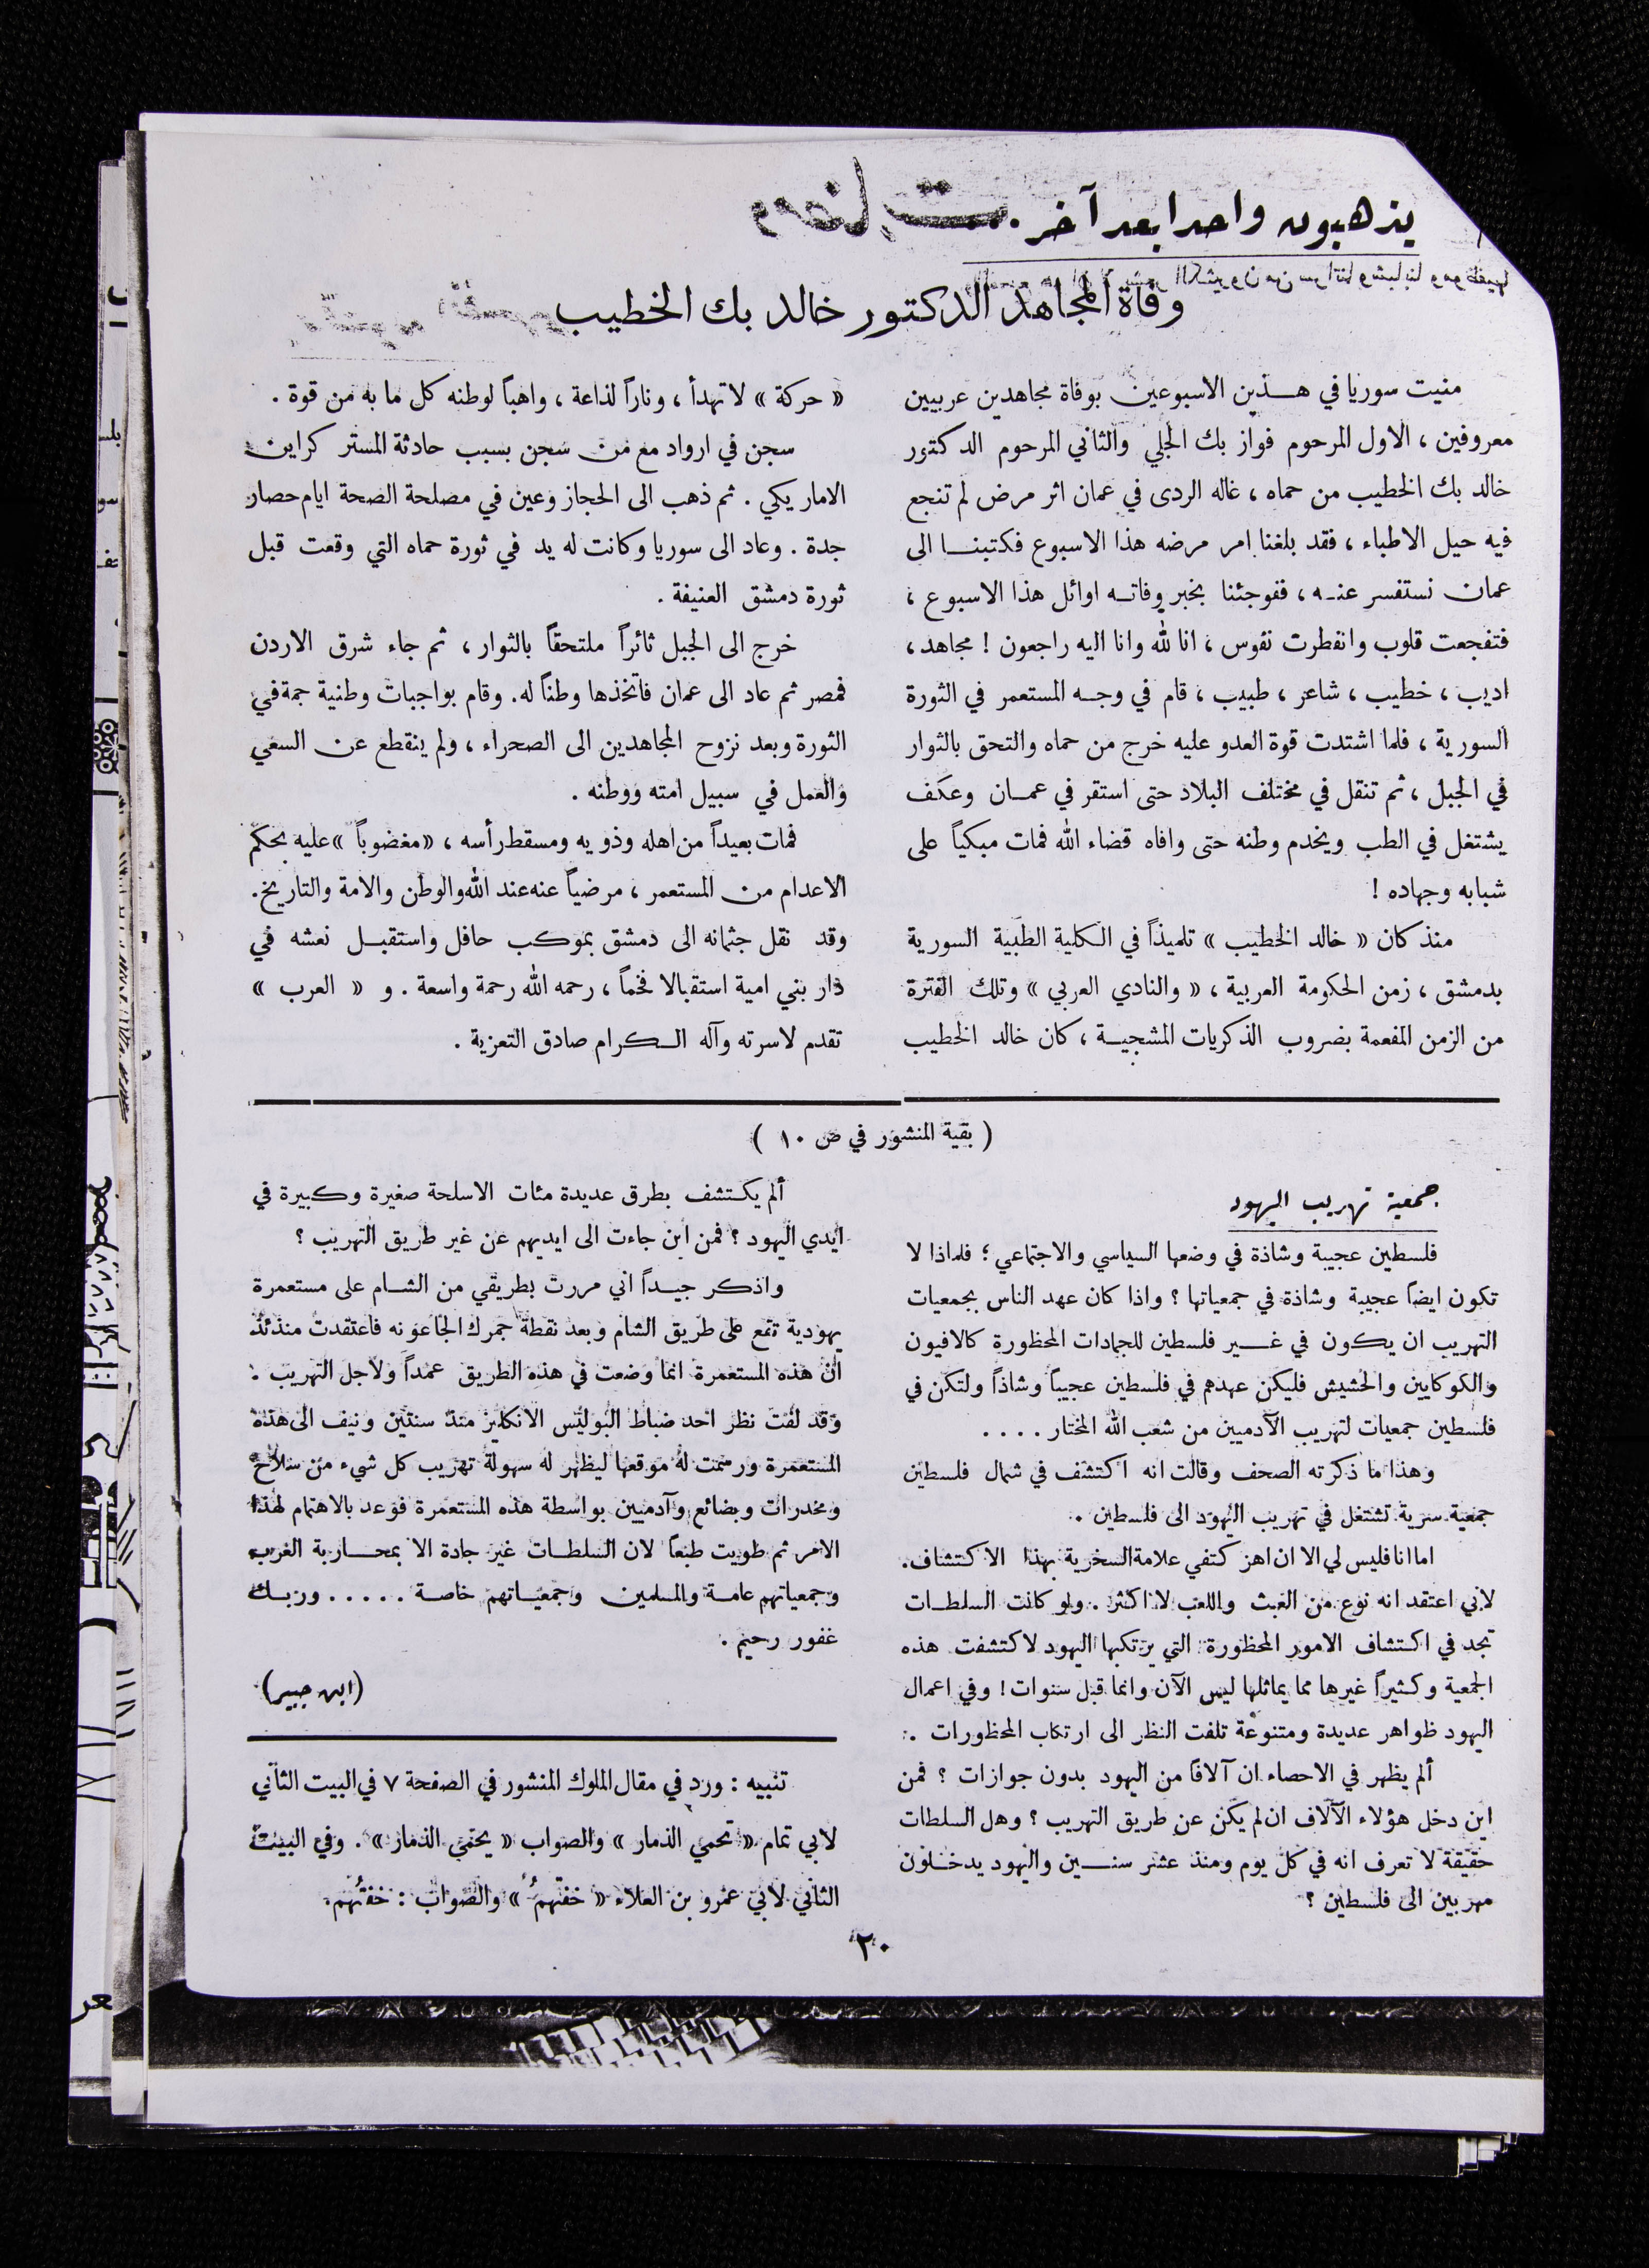 يذهبون واحدا بعد آخر . . .
وفاة المجاهد الدكتور خالد بك الخطيب
منيت سوريا في هـذين الاسبوعين بوفاة مجاهدين عربيين
معروفين ، الاول المرحوم فواز بك الجلي والثاني المرحوم الدكتور
خالد بك الخطيب من حماه ، غاله الردى في عمان اثر مرض لم تنجع
فيه حيل الاطباء ، فقد بلغنا امر مرضه هذا الاسبوع فكتبنا الى
عمان نستفسر عنه ، ففوجئنا بخبر وفاته اوائل هذا الاسبوع ،
فتفجعت قلوب وانفطرت نفوس ، انا لله وانا اليه راجعون ! مجاهد ،
اديب ، خطيب ، شاعر ، طبيب ، قام في وجه المستعمر في الثورة
السورية ، فلما اشتدت قوة العدو عليه خرج من حماه والتحق بالثوار
في الجبل ، ثم تنقل في مختلف البلاد حتى استقر في عمان وعكف
يشتغل في الطب ويخدم وطنه حتى وافاه قضاء الله فمات مبكياً على
شبابه وجهاده !
منذ كان « خالد الخطيب » تلميذاً في الكلية الطبية السورية
بدمشق ، زمن الحكومة العربية ، « والنادي العربي » وتلك الفترة
من الزمن المفعمة بضروب الذكريات المشجية ، كان خالد الخطيب
« حركة » لا تهدأ ، وناراً لذاعة ، واهباً لوطنه كل ما به من قوة .
سجن في ارواد مع من سجن بسبب حادثة المستر كراين
الاماريكي . ثم ذهب الى الحجاز وعين في مصلحة الصحة ايام حصار
جدة . وعاد الى سوريا وكانت له يد في ثورة حماه التي وقعت قبل
ثورة دمشق العنيفة .
خرج الى الجبل ثائراً ملتحقاً بالثوار ، ثم جاء شرق الاردن
فمصر ثم عاد الى عمان فاتخذها وطناً له. وقام بواجبات وطنية جمة في
الثورة وبعد نزوح المجاهدين الى الصحراء ، ولم ينقطع عن السعي
والعمل في سبيل امته ووطنه .
فمات بعيداً من اهله وذويه ومسقط رأسه ، «مغضوباً» عليه بحكم
الاعدام من المستعمر ، مرضياً عنه عند الله والوطن والامة والتاريخ.
وقد نقل جثمانه الى دمشق بموكب حافل واستقبل نعشه في
دار بني امية استقبالا فخماً ، رحمه الله رحمة واسعة . و « العرب »
تقدم لاسرته وآله الكرام صادق التعزية .
( بقية المنشور في ص ١٠ )
جمعية تهريب اليهود
فلسطين عجيبة وشاذة في وضعها السياسي والاجتماعي ؛ فلماذا لا
تكون ايضاً عجيبة وشاذة في جمعياتها ؟ واذا كان عهد الناس بجمعيات
التهريب ان يكون في غير فلسطين للجمادات المحظورة كالافيون
والكوكايين والحشيش فليكن عهدهم في فلسطين عجيباً وشاذاً ولتكن في
فلسطين جمعيات لتهريب الآدميين من شعب الله المختار . . . .
وهذا ما ذكرته الصحف وقالت انه اكتشف في شمال فلسطين
جمعية سرية تشتغل في تهريب اليهود الى فلسطين .
اما انا فليس لي الا ان اهز كتفي علامة السخرية بهذا الاكتشاف.
لاني اعتقد انه نوع من العبث واللعب لا اكثر . ولو كانت السلطات
تجد في اكتشاف الامور المحظورة التي يرتكبها اليهود لاكتشفت هذه
الجمعية وكثيراً غيرها مما يماثلها ليس الآن وانما قبل سنوات ! وفي اعمال
اليهود ظواهر عديدة ومتنوعة تلفت النظر الى ارتكاب المحظورات .
ألم يظهر في الاحصاء ان آلافاً من اليهود بدون جوازات ؟ فمن
اين دخل هؤلاء الآلاف ان لم يكن عن طريق التهريب ؟ وهل السلطات
حقيقة لا تعرف انه في كل يوم ومنذ عشر سنين واليهود يدخلون
مهربين الى فلسطين ؟
ألم يكتشف بطرق عديدة مئات الاسلحة صغيرة وكبيرة في
ايدي اليهود ؟ فمن اين جاءت الى ايديهم عن غير طريق التهريب ؟
واذكر جيداً اني مررت بطريقي من الشام على مستعمرة
يهودية تقع على طريق الشام وبعد نقطة جمرك الجاعونه فاعتقدت منذئذ
ان هذه المستعمرة انما وضعت في هذه الطريق عمداً ولاجل التهريب .
وقد لفت نظر احد ضباط البوليس الانكليز منذ سنتين ونيف الى هذه
المستعمرة ورسمت له موقعها ليظهر له سهولة تهريب كل شيء من سلاح
ومخدرات وبضائع وآدميين بواسطة هذه المستعمرة فوعد بالاهتمام لهذا
الامر ثم طويت طبعاً لان السلطات غير جادة الا بمحاربة العرب
وجمعياتهم عامة والمسلمين وجمعياتهم خاصة . . . . . وربك
غفور رحيم .
(ابن جبير)
تنبيه : ورد في مقال الملوك المنشور في الصفحة ٧ في البيت الثاني
لابي تمام « تحمي الذمار » والصواب « يحمي الذمار » . وفي البيت
الثاني لابي عمرو بن العلاء « خفتهمُ » والصواب : خفتُهم.
٢٠